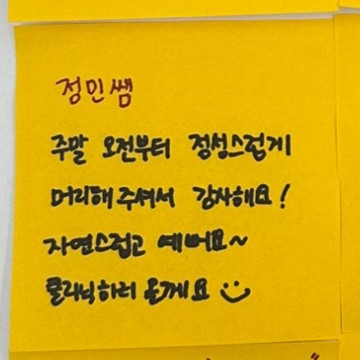 정민쌤
주말 오전부터 정성스럽게
머리해주셔서 감사해요!
자연스럽고 예뻐요~
클리닉하러 올게요